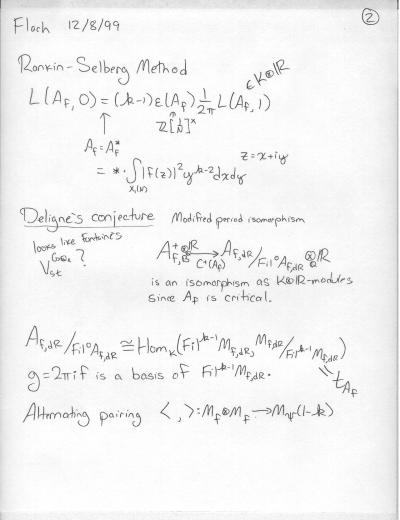 Flach 12/8/99
②
Rankin-Selberg Method
L(A_f, 0) = (k-1) ε(A_f) 1/2π L(A_f, 1) ∈ K⊗ℝ
↑ ℤ[1/N]^×
A_f = A_f^*
z = x+iy
= * · ∫_{X_1(N)} |f(z)|² y^{k-2} dxdy
Deligne's conjecture Modified period isomorphism
looks like Fontaine's
V_st ?
A_{f,B}^+ ⊗ℝ → A_{f,dR}/Fil⁰A_{f,dR} ⊗ℝ
C⁺(A_f)
is an isomorphism as K⊗ℝ-modules
since A_f is critical.
A_{f,dR}/Fil⁰A_{f,dR} ≅ Hom_K(Fil^{k-1}M_{f,dR}, M_{f,dR}/Fil^{k-1}M_{f,dR})
g = 2πif is a basis of Fil^{k-1}M_{f,dR}.
= t_{A_f}
Alternating pairing < , >: M_f⊗M_f → M_ψ(1-k)